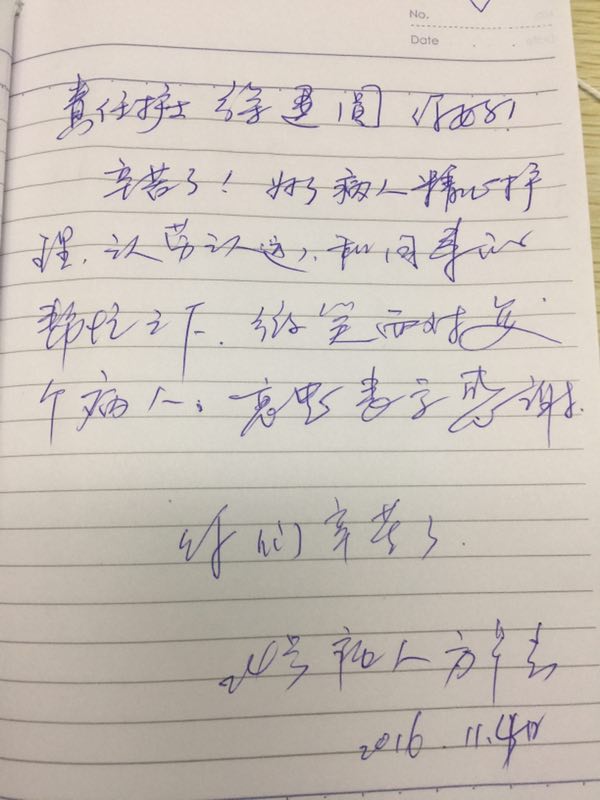 No.
Date
责任护士 徐 圆 你好!
辛苦了! 对病人精心护
理,认劳认 ,和同事的
帮忙之下,微笑面对每
个病人, 衷 表示感谢.
你们辛苦了.
24号病人方
2016.11.4日